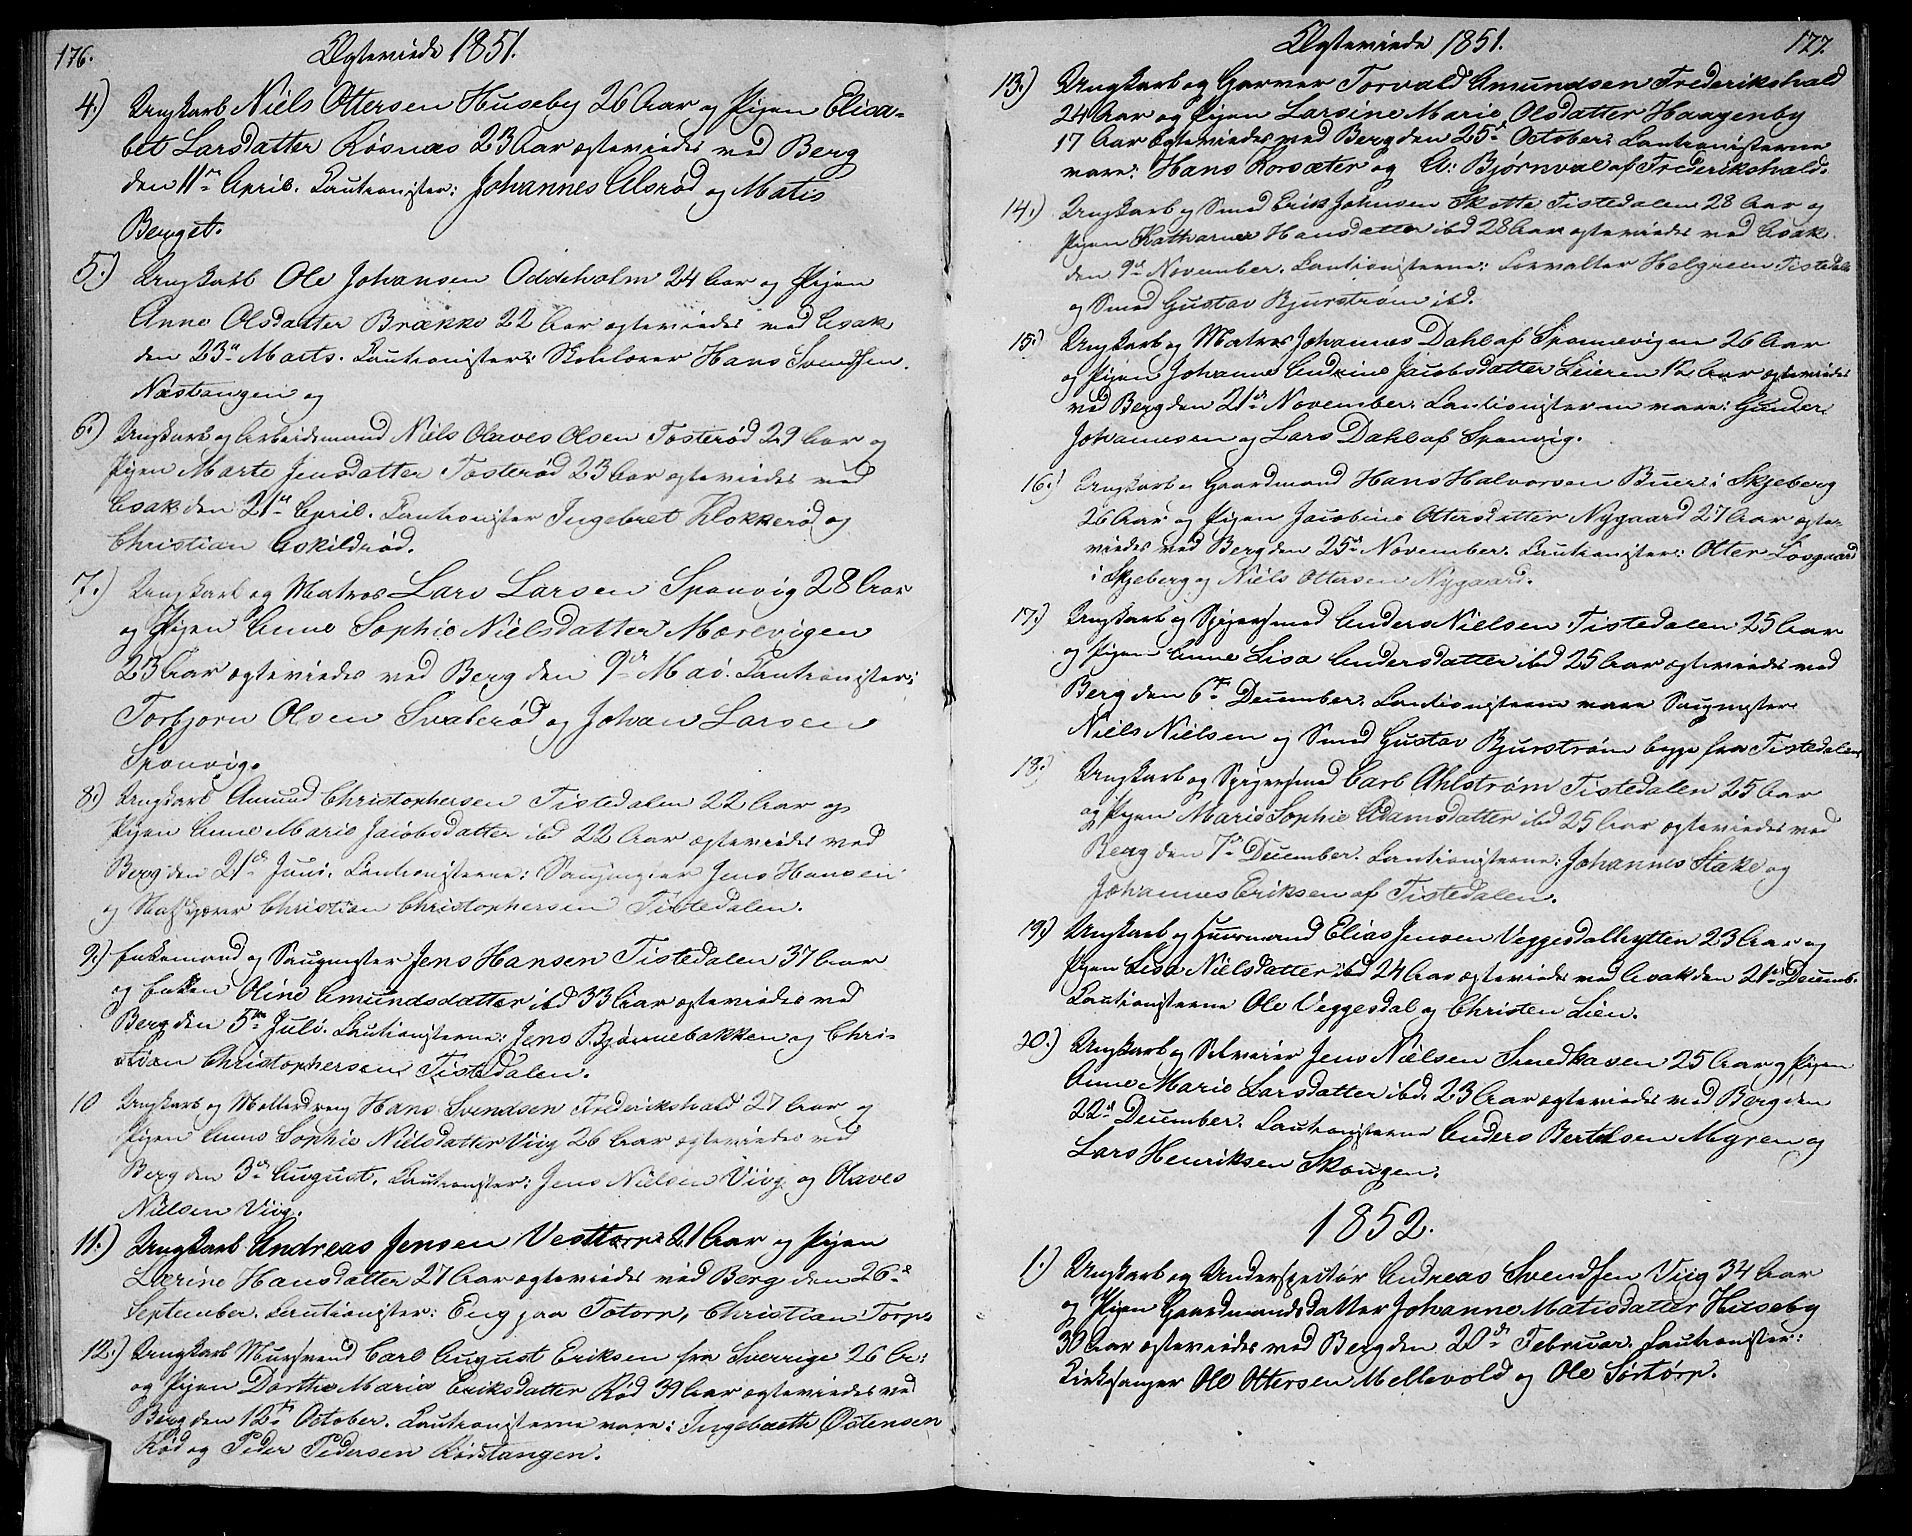 176.
Ægteviede 1851.
4.) Ungkarl Niels Ottersen Huseby 26 Aar og Pigen Elisa-
bet Larsdatter Røsnæs 23 Aar ægteviedes ved Berg
den 11te April. Cautionister: Johannes Alsrød og Matis
Berget.
5.) Ungkarl Ole Johansen Oddeholm 24 Aar og Pigen
Anne Olsdatter Brække 22 Aar ægteviedes ved Asak
den 23de Marts. Cautionister: Skolelærer Hans Svendsen
Næstangen og
6.) Ungkarl og Arbeidsmand Niels Olaves Olsen Tosterød 29 Aar og
Pigen Marte Jensdatter Tosterød 23 Aar ægteviedes ved
Asak den 21de April. Cautionister Ingebret Klokkerød og
Christian Askildrød.
7.) Ungkarl og Matros Lars Larsen Sponvig 28 Aar
og Pigen Anne Sophie Nielsdatter Mærevigen
23 Aar ægteviedes ved Berg den 9de Mai. Cautionister:
Torbjørn Olsen Svalerød og Johan Larsen
Sponvig.
8.) Ungkarl Amund Christophersen Tistedalen 22 Aar og
Pigen Anne Marie Jacobsdatter ibd 22 Aar ægteviedes ved
Berg den 21de Juni. Cautionisterne: Saugmester Jens Hansen
og Christian Christophersen Tistedalen.
9.) Enkemand og Saugmester Jens Hansen Tistedalen 37 Aar
og Enken Oline Amundsdatter ibd 33 Aar ægteviedes ved
Berg den 5te Juli. Cautionisterne: Jens Bjørnebakken og Chri-
stian Christophersen Tistedalen.
10 Ungkarl og Møllerdreng Hans Svendsen Frederikshald 27 Aar og
Pigen Anne Sophie Nielsdatter Viig 26 Aar ægteviedes ved
Berg den 3de August. Cautionister: Jens Nielsen Viig og Olaves
Nielsen Viig.
11.) Ungkarl Andreas Jensen Vesttorp 21 Aar og Pigen
Lærine Hansdatter 27 Aar ægteviedes ved Berg den 26de
September. Cautionister: Eng paa Totorp, Christian Torp.
12.) Ungkarl Mursvend Carl August Eriksen fra Sverrige 26 A:
og Pigen Dorthe Maria Eriksdatter Rød 39 Aar ægteviedes ved
Berg den 12te October. Cautionisterne vare: Ingebreth Østensen
Rød og Peder Pedersen Rødstangen.
Ægteviede 1851.
177.
13.) Ungkarl og Garver Torvald Amundsen Frederikshald
24 Aar og Pigen Larsine Marie Olsdatter Haagenby
17 Aar ægteviedes ved Berg den 25de October. Cautionisterne
vare: Hans Korsæter og A: Bjørnval af Frederikshald.
14.) Ungkarl og Smed Erik Johnsen Skotte Tistedalen 28 Aar og
Pigen Katharine Hansdatter ibd 28 Aar ægteviedes ved Asak
den 9de November. Cautionisterne: Forvalter Helgreen Tistedale
og Smed Gustav Bjurstrøm ibd.
15.) Ungkarl og Matros Johannes Dahl af Sponnevigen 26 Aar
og Pigen Johanne Andrine Jacobsdatter Leieren 18 Aar ægteviedes
ved Berg den 21de November. Cautionisterne vare: Gunder
Johannesen og Lars Dahl af Sponvig.
16.) Ungkarl og Gaardmand Hans Halvorsen Buer i Skjeberg
26 Aar og Pigen Jacobine Ottersdatter Nygaard 27 Aar ægte-
viedes ved Berg den 25de November. Cautionister: Otter Løsgaard
i Skjeberg og Niels Ottersen Nygaard.
17.) Ungkarl og Spigersmed Anders Nielsen Tistedalen 25 Aar
og Pigen Anne Lisa Andersdatter ibd 25 Aar ægteviedes ved
Berg den 6te December. Cautionisterne vare Saugmester
Niels Nielsen og Smed Gustav Bjurstrøm begge fra Tistedalen
18.) Ungkarl og Spigersmed Carl Ahlstrøm Tistedalen 25 Aar
og Pigen Marie Sophie Adamsdatter ibd 25 Aar ægteviedes ved
Berg den 7de December. Cautionisterne: Johannes Stake og
Johannes Eriksen af Tistedalen.
19.) Ungkarl og Huusmand Elias Jensen Veggesdalhytten 23 Aar og
Pigen Lisa Nielsdatter ibd 24 Aar ægteviedes ved Asak den 21de Decemb.
Cautionisterne Ole Veggesdal og Christen Lien.
20.) Ungkarl og Selveier Jens Nielsen Smedhaven 25 Aar og Pigen
Anne Marie Larsdatter ibd. 23 Aar ægteviedes ved Berg den
22de December. Cautionisterne Anders Bertelsen Myren og
Lars Henriksen Skougen.
1852.
1.) Ungkarl og Andreas Svendsen Viig 34 Aar
og Pigen Gaardmandsdatter Johanne Matisdatter Huseby
30 Aar ægteviedes ved Berg den 20de Februar. Cautionister:
Kirkesanger Ole Ottersen Mellevold og Ole Sørtorp.